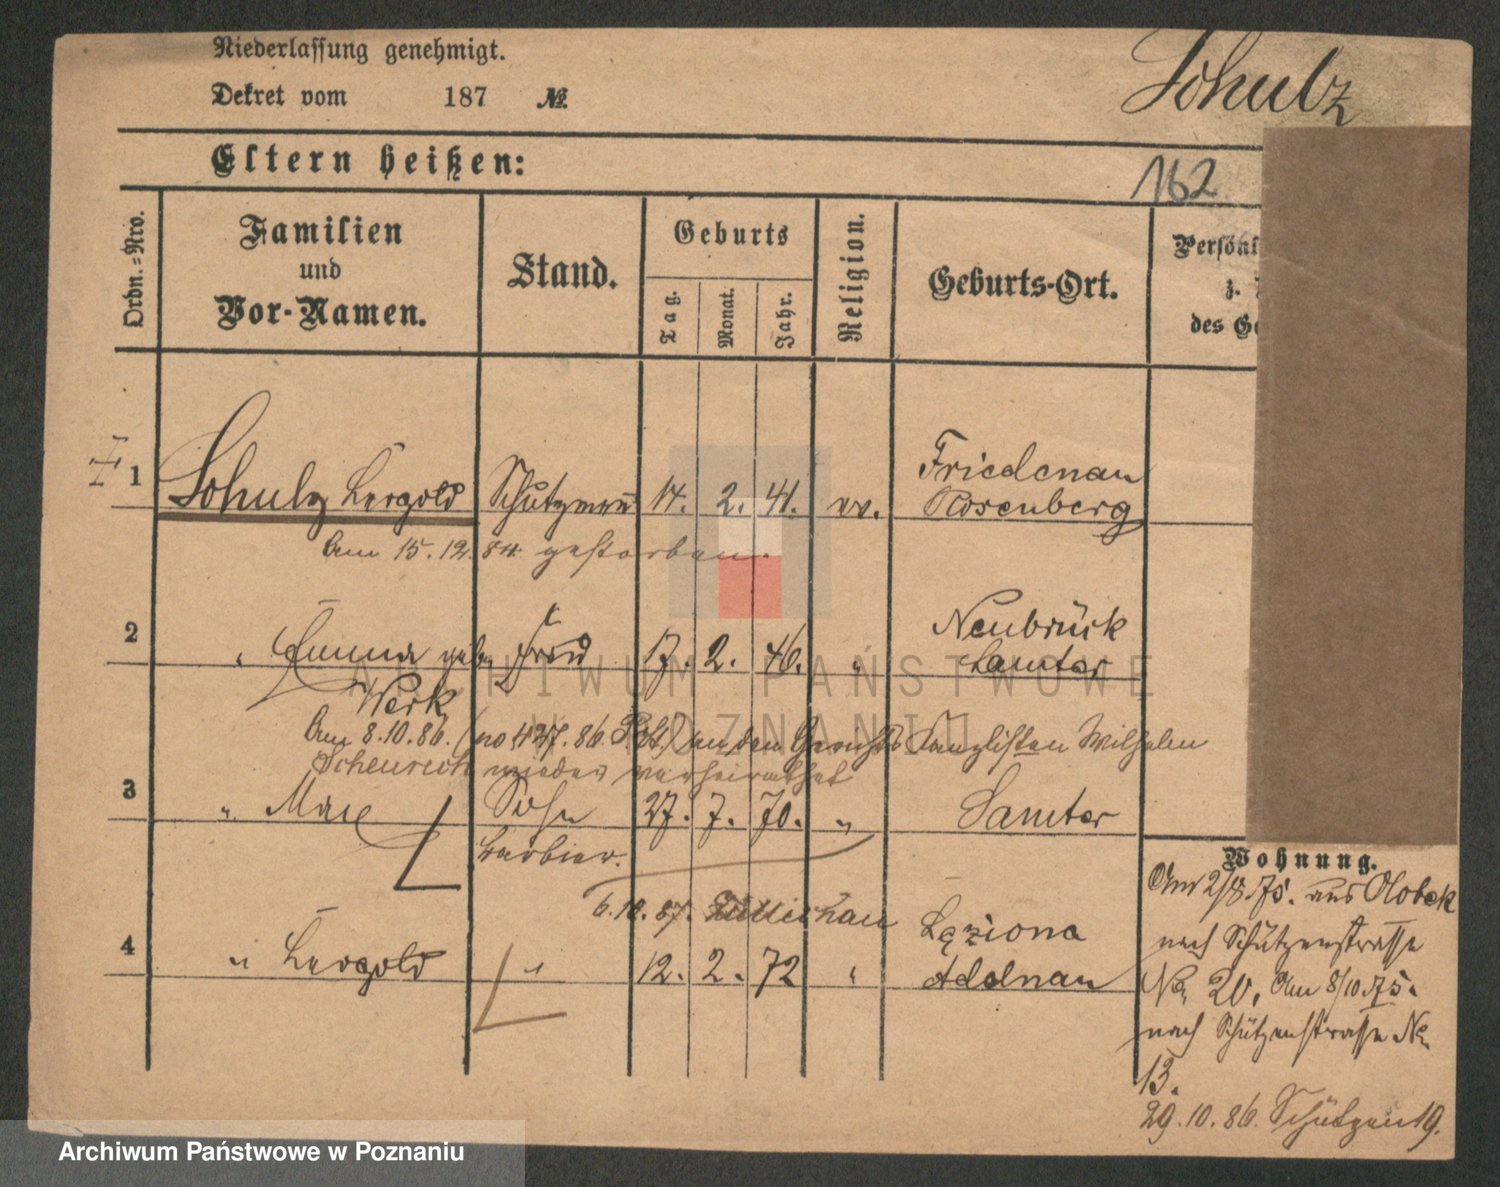 Niederlassung genehmigt.
Dekret vom 187 №.
Schulz
Eltern heißen:
162
Ordn.-Nro.
Familien
und
Vor-Namen.
Stand.
Geburts
Tag.
Monat.
Jahr.
Religion.
Geburts-Ort.
Persönl
z.
des Ge
1 Schulz Leopold Schutzmann 14. 2. 41. ev. Friedenau
Rosenberg
Am 15.12.84 gestorben.
2 " Emma geb. Frau 17. 2. 46. " Neubrück
Samter
Werk
Am 8.10.86. (no 427. 86. ) an den Gerichts Kanzlisten Wilhelm
Scheurich wieder verheirathet
3 " Max Sohn 27. 7. 70. " Samter
Barbier.
6.10.87. Züllichau
4 " Leopold " 12. 2. 72 " Lęziona
Adelnau
Wohnung.
Am 2/8.75. aus Olobok
nach Schützenstrasse
No 20, Am 8/10.75.
nach Schützenstrasse No
13.
29.10.86. Schützen 19.
ARCHIWUM PAŃSTWOWE
W POZNANIU
Archiwum Państwowe w Poznaniu